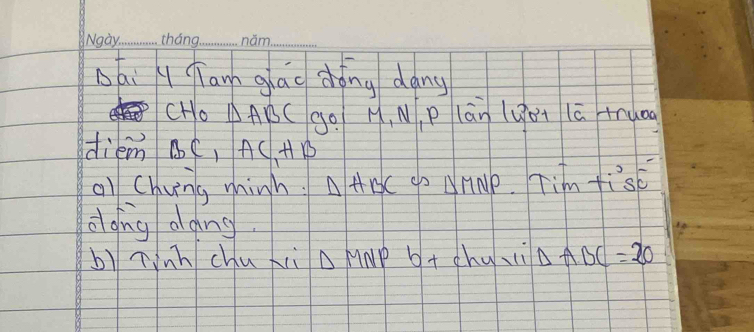 Ngày............ tháng............ năm..............
Bài 4 Tam giác đồng dạng
CHo ΔABC gọi M, N, P lần lượt là trung
điểm BC, AC, AB
a) Chứng minh: ΔABC ∽ ΔMNP. Tìm tỉ số
đồng dạng.
b) Tính chu vi Δ MNP bt chu vi Δ ABC = 20